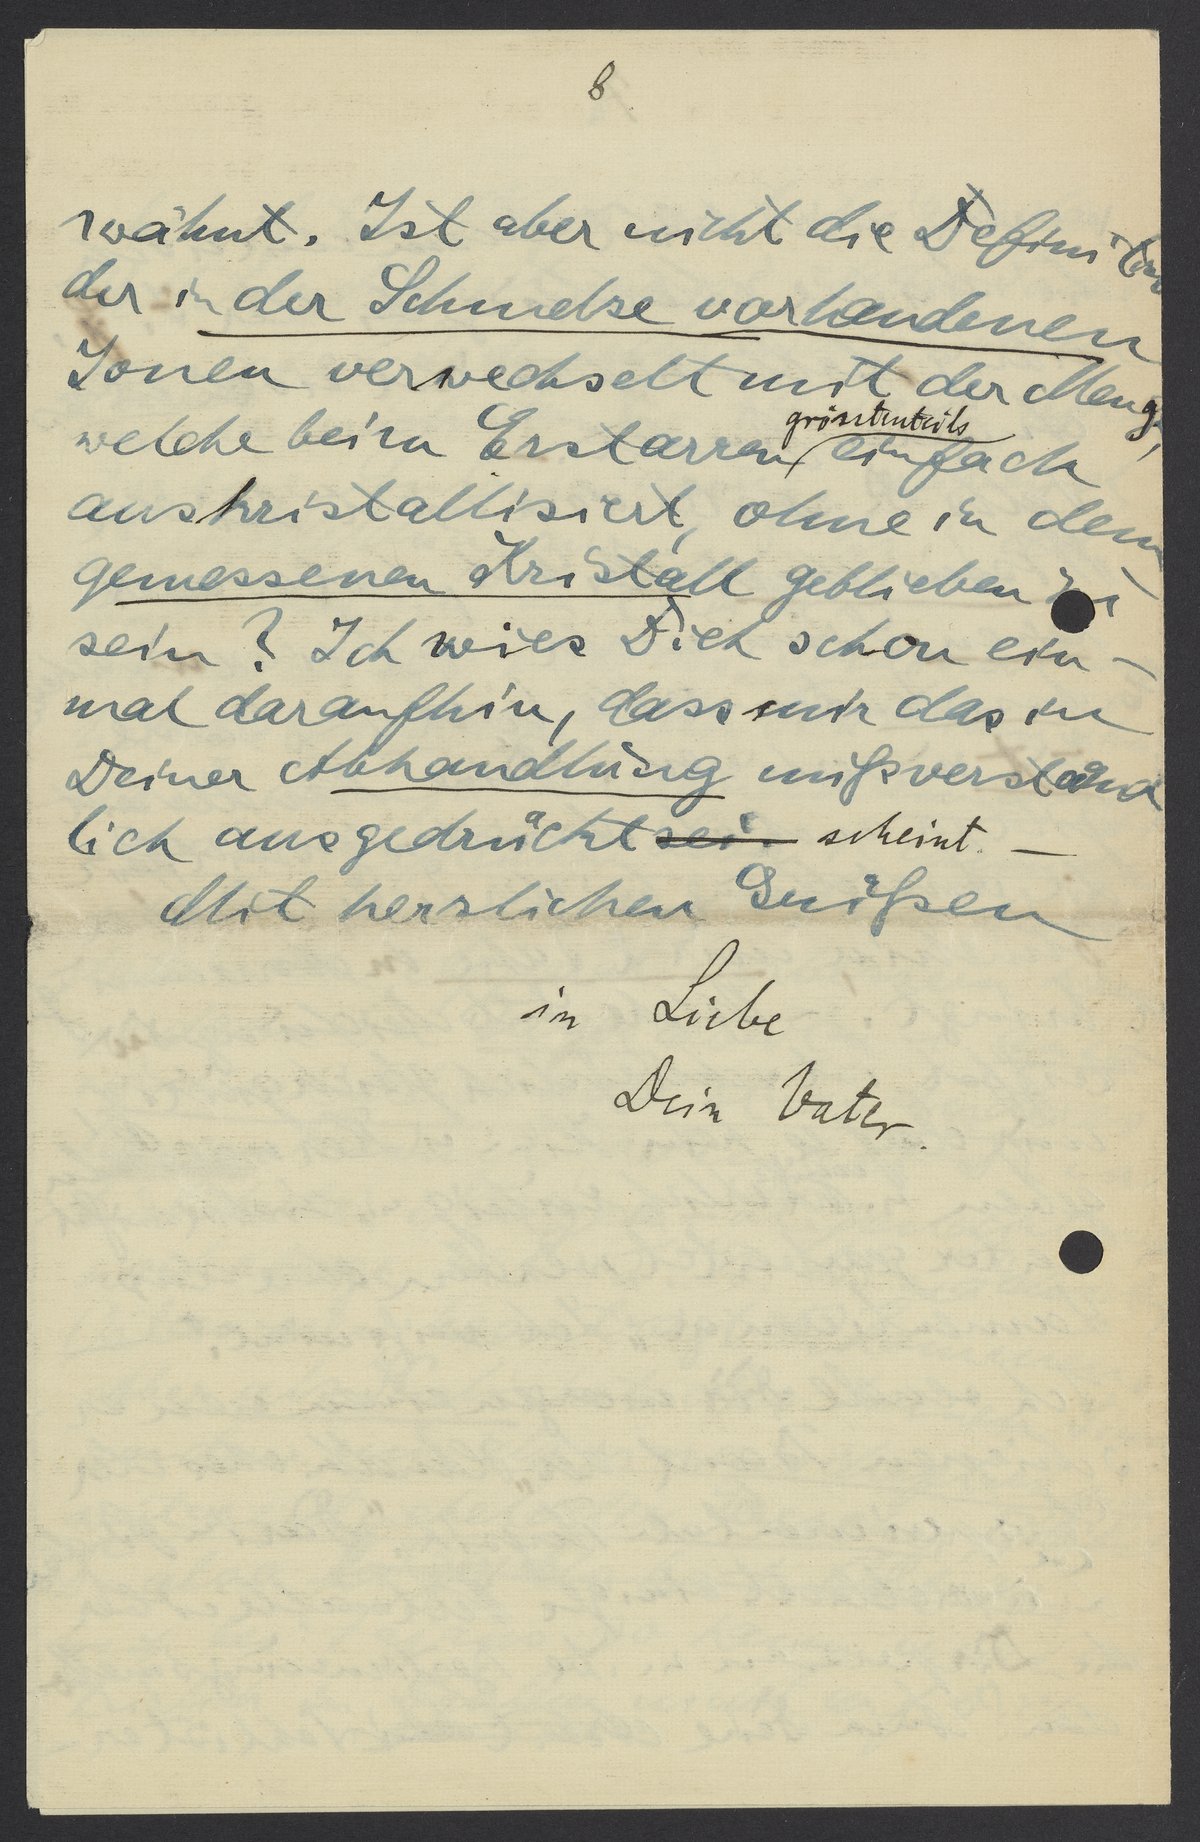 8
rwähnt. Ist aber nicht die Definition
der in der Schmelze vorhandenen
Ionen verwechselt mit der Menge,
grösstenteils
welche beim Erstarren einfach
auskristallisiert, ohne in dem
gemessenen Kristall geblieben zu
sein? Ich wies Dich schon ein-
mal daraufhin, dass mir das in
Deiner Abhandlung mißverständ
lich ausgedrückt sei. scheint. —
Mit herzlichen Grüßen
in Liebe
Dein Vater.